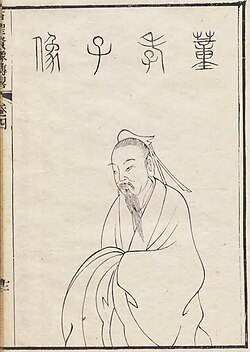 董孝子像
古聖賢像傳畧
卷四